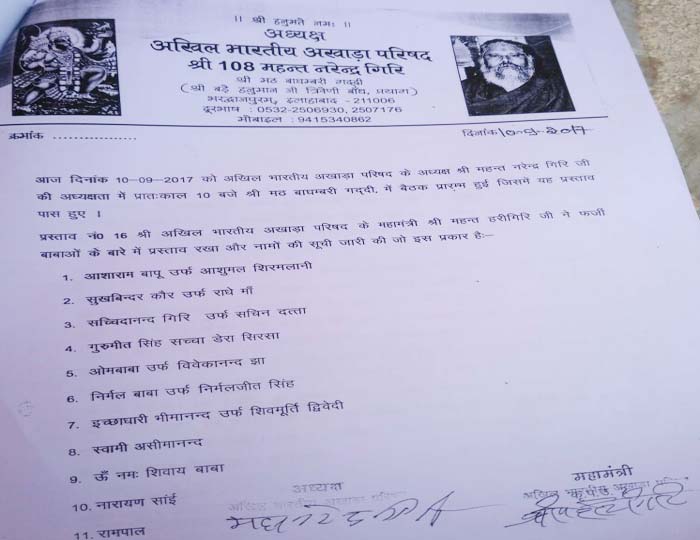 ।। श्री हनुमते नमः ।।
अध्यक्ष
अखिल भारतीय अखाड़ा परिषद
श्री 108 महन्त नरेन्द्र गिरि
श्री मठ बाघम्बरी गद्दी
(श्री बड़े हनुमान जी त्रिवेणी बाँध, प्रयाग)
भरद्वाजपुरम, इलाहाबाद - 211006
दूरभाष : 0532-2506930, 2507176
मोबाइल : 9415340862
क्रमांक ..................
दिनांक 10-9-2017
आज दिनांक 10-09-2017 को अखिल भारतीय अखाड़ा परिषद के अध्यक्ष श्री महन्त नरेन्द्र गिरि जी
की अध्यक्षता में प्रातःकाल 10 बजे श्री मठ बाघम्बरी गद्दी, में बैठक प्रारम्भ हुई जिसमें यह प्रस्ताव
पास हुए ।
प्रस्ताव नं0 16 श्री अखिल भारतीय अखाड़ा परिषद के महामंत्री श्री महन्त हरीगिरि जी ने फर्जी
बाबाओं के बारे में प्रस्ताव रखा और नामों की सूची जारी की जो इस प्रकार हैः–
1. आशाराम बापू उर्फ आशुमल शिरमलानी
2. सुखबिन्दर कौर उर्फ राधे माँ
3. सच्चिदानन्द गिरि उर्फ सचिन दत्ता
4. गुरुमीत सिंह सच्चा डेरा सिरसा
5. ओमबाबा उर्फ विवेकानन्द झा
6. निर्मल बाबा उर्फ निर्मलजीत सिंह
7. इच्छाधारी भीमानन्द उर्फ शिवमूर्ति द्विवेदी
8. स्वामी असीमानन्द
9. ऊँ नमः शिवाय बाबा
10. नारायण सांई
11. रामपाल
अध्यक्ष
अखिल भारतीय अखाड़ा परिषद
महामंत्री
अखिल अखाड़ा